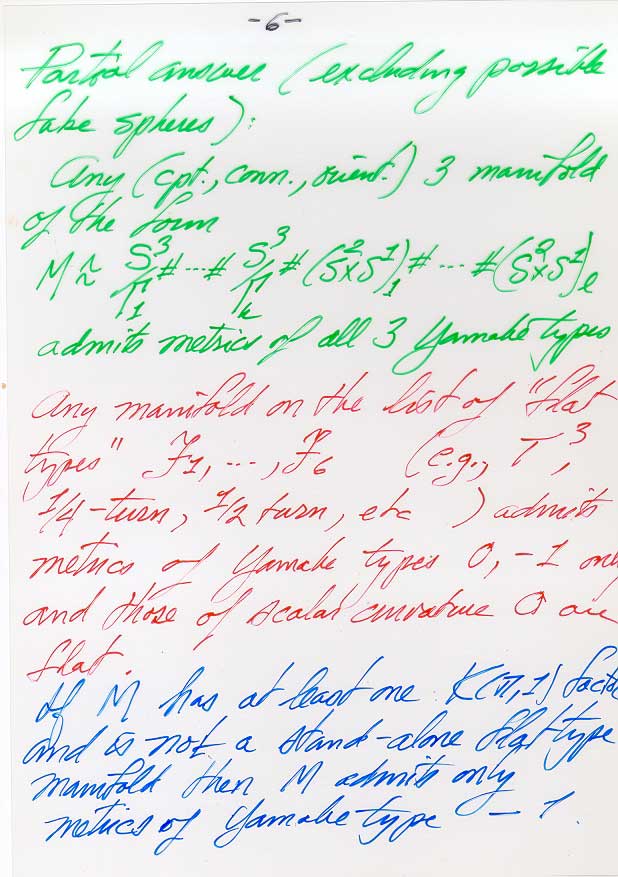 -6-
Partial answer (excluding possible
fake spheres):
Any (cpt., conn., orient.) 3 manifold
of the form
M ≈ S³/Γ₁ # ... # S³/Γₖ # (S²×S¹)₁ # ... # (S²×S¹)ₗ
admits metrics of all 3 Yamabe types
Any manifold on the list of "flat
types" F₁, ..., F₆ (e.g., T³,
1/4-turn, 1/2 turn, etc ) admits
metrics of Yamabe types 0, -1 only
and those of scalar curvature 0 are
flat.
If M has at least one K(π,1) factor
and is not a stand-alone flat type
manifold then M admits only
metrics of Yamabe type -1.